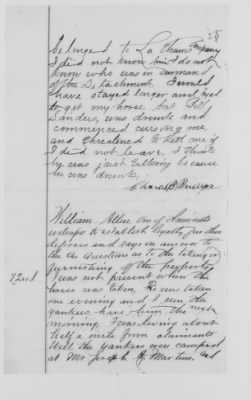 25
belonged to Lathams Company
I did not know him I do not
know who was in command
of the Detachment. I would
have stayed longer and tryed
to get my horse, but Bill
Sanders, was drunk and
commenced cursing me,
and threatened to kill me if
I did not leave. I think
he was just talking because
he was drunk.
Charles B
William Allen one of
witness to establish loyalty, further
deposes and says in answer to
the Questions as to the taking or
furnishing of the property
72nd I was not present when the
horse was taken, He was taken
one evening and I seen the
yankees have him the next
morning. I was living about
half a mile from claimants
Well the Yankees were camped
at Mr Joseph G Martins, and